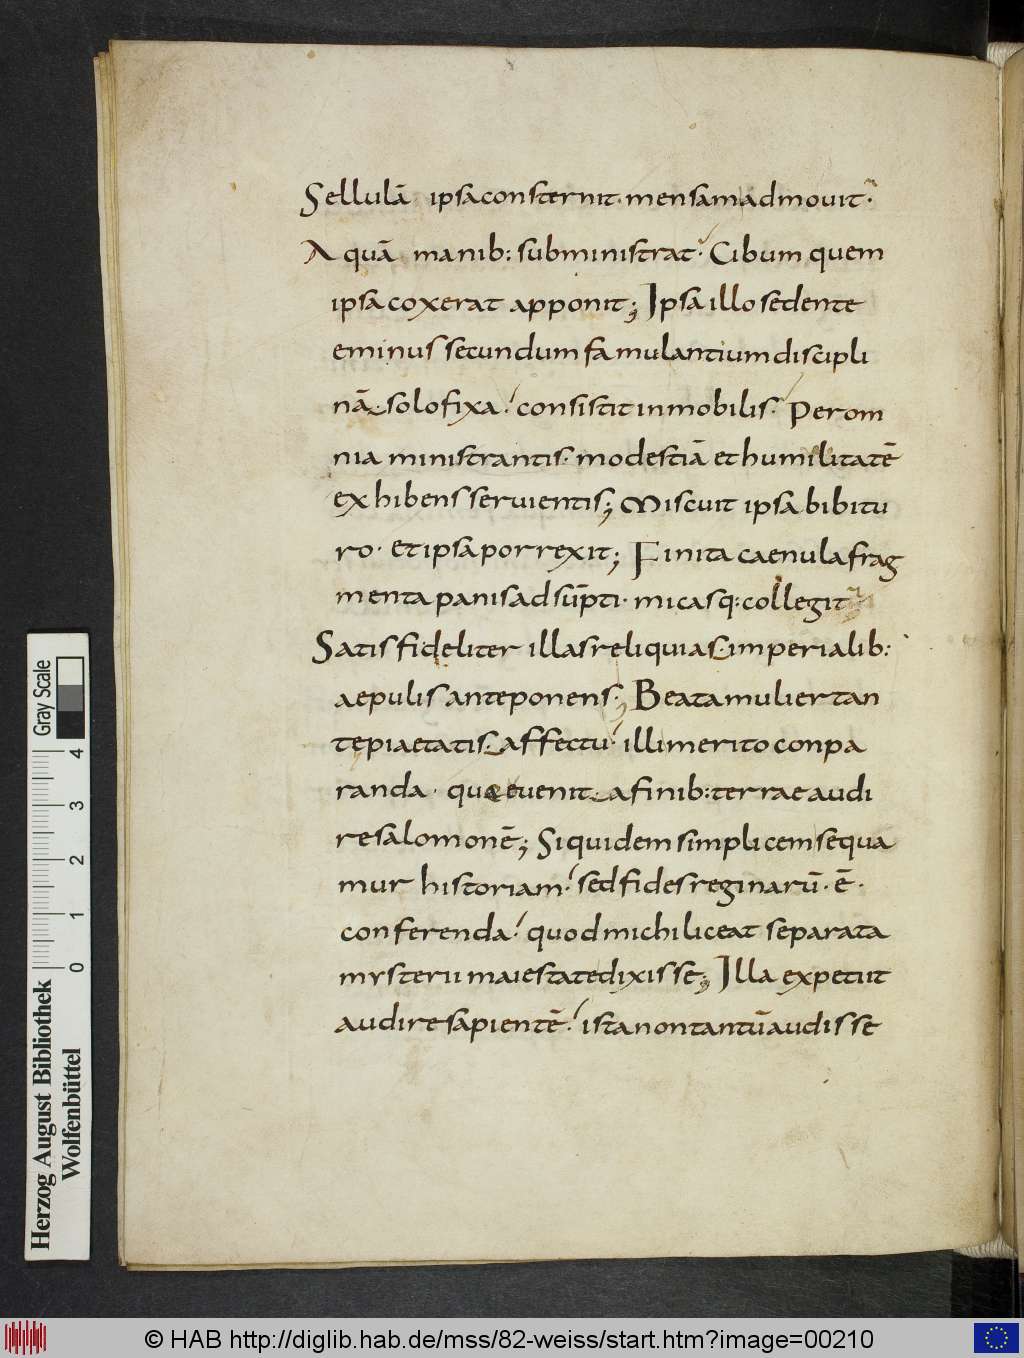 Sellulā ipsa consternit· mensam admovit·
Aquā manib: subministrat· Cibum quem
ipsa coxerat apponit; Ipsa illo sedente
eminus secundum famulantium discipli
nā· solo fixa· consistit inmobilis· Per om
nia ministrantis· modestiā et humilitatē
exhibens servientis; Miscuit ipsa bibitu
ro· et ipsa porrexit; Finita caenula frag
menta panis adsūpti· micasq: collegit
Satis fideliter illas reliquias· imperialib:
aepulis anteponens; Beata mulier tan
te piaetatis· affectu· illi merito conpa
randa· quae evenit· a finib: terrae audi
re salomonē; Siquidem simplicem sequa
mur historiam· sed fides reginarū· ē·
conferenda· quod michi liceat separata
mysterii maiestate dixisse; Illa expetiit
audire sapientē· ista non tantū audisse
Herzog August Bibliothek
Wolfenbüttel
Gray Scale
0 1 2 3 4
© HAB http://diglib.hab.de/mss/82-weiss/start.htm?image=00210